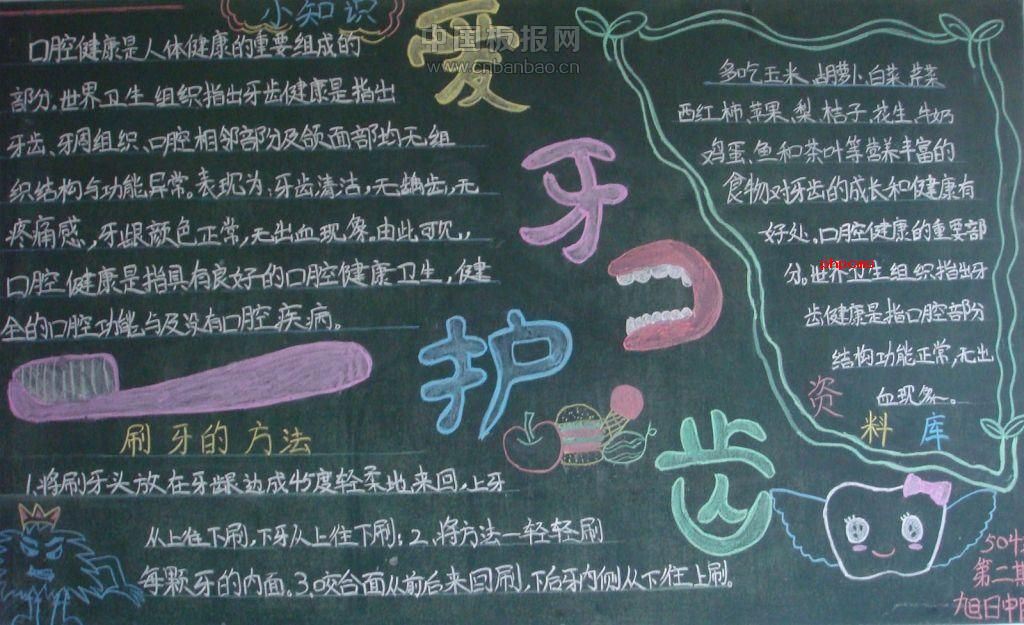 小知识
口腔健康是人体健康的重要组成的
部分。世界卫生组织指出牙齿健康是指出
牙齿、牙周组织、口腔相邻部分及颌面部均无组
织结构与功能异常。表现为:牙齿清洁,无龋齿,无
疼痛感,牙龈颜色正常,无出血现象。由此可见,
口腔健康是指具有良好的口腔健康卫生,健
全的口腔功能与及没有口腔疾病。
爱
牙
护
齿
中国板报网
www.cnbanbao.cn
刷牙的方法
1.将刷牙头放在牙龈边成45度轻柔地来回,上牙
从上往下刷,下牙从上往下刷;2、将方法一轻轻刷
每颗牙的内面。3.咬合面从前后来回刷,下后牙内侧从下往上刷。
多吃玉米、胡萝卜、白菜、芹菜
西红柿、苹果、梨、桔子、花生、牛奶
鸡蛋、鱼和茶叶等营养丰富的
食物对牙齿的成长和健康有
好处。口腔健康的重要部
分。世界卫生组织指出牙
phpcms
齿健康是指口腔部分
结构功能正常,无出
血现象。
资料库
504
第二期
旭日中